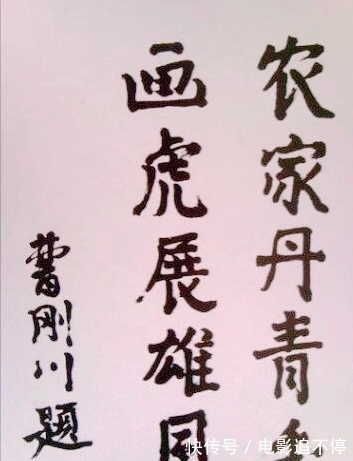 农家丹青
画虎展雄
曹刚川题
快传号 / 电影追不停